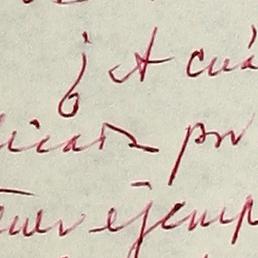 ¿A cuá
licar por
ener ejemp